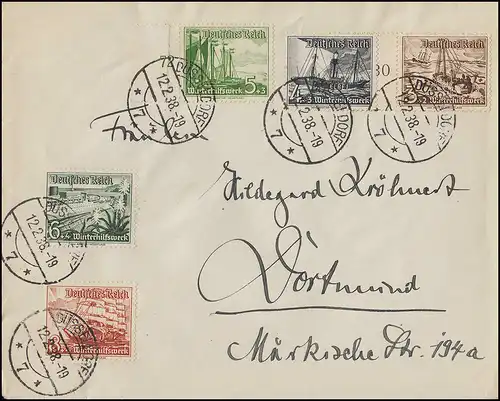 Deutsches Reich
5+3
Winterhilfswerk
Deutsches Reich
4+3
Winterhilfswerk
30
Deutsches Reich
3+2
Winterhilfswerk
DÜSSELDORF
12.2.38.-19
* 7 *
DÜSSELDORF
12.2.38.-19
* 7 *
DÜSSELDORF
12.2.38.-19
* 7 *
Deutsches Reich
6+4
Winterhilfswerk
DÜSSELDORF
12.2.38.-19
* 7 *
Deutsches Reich
Winterhilfswerk
DÜSSELDORF
12.2.38.-19
* 7 *
Hildegard Kröhnert
Dortmund
Märkische Str. 194a